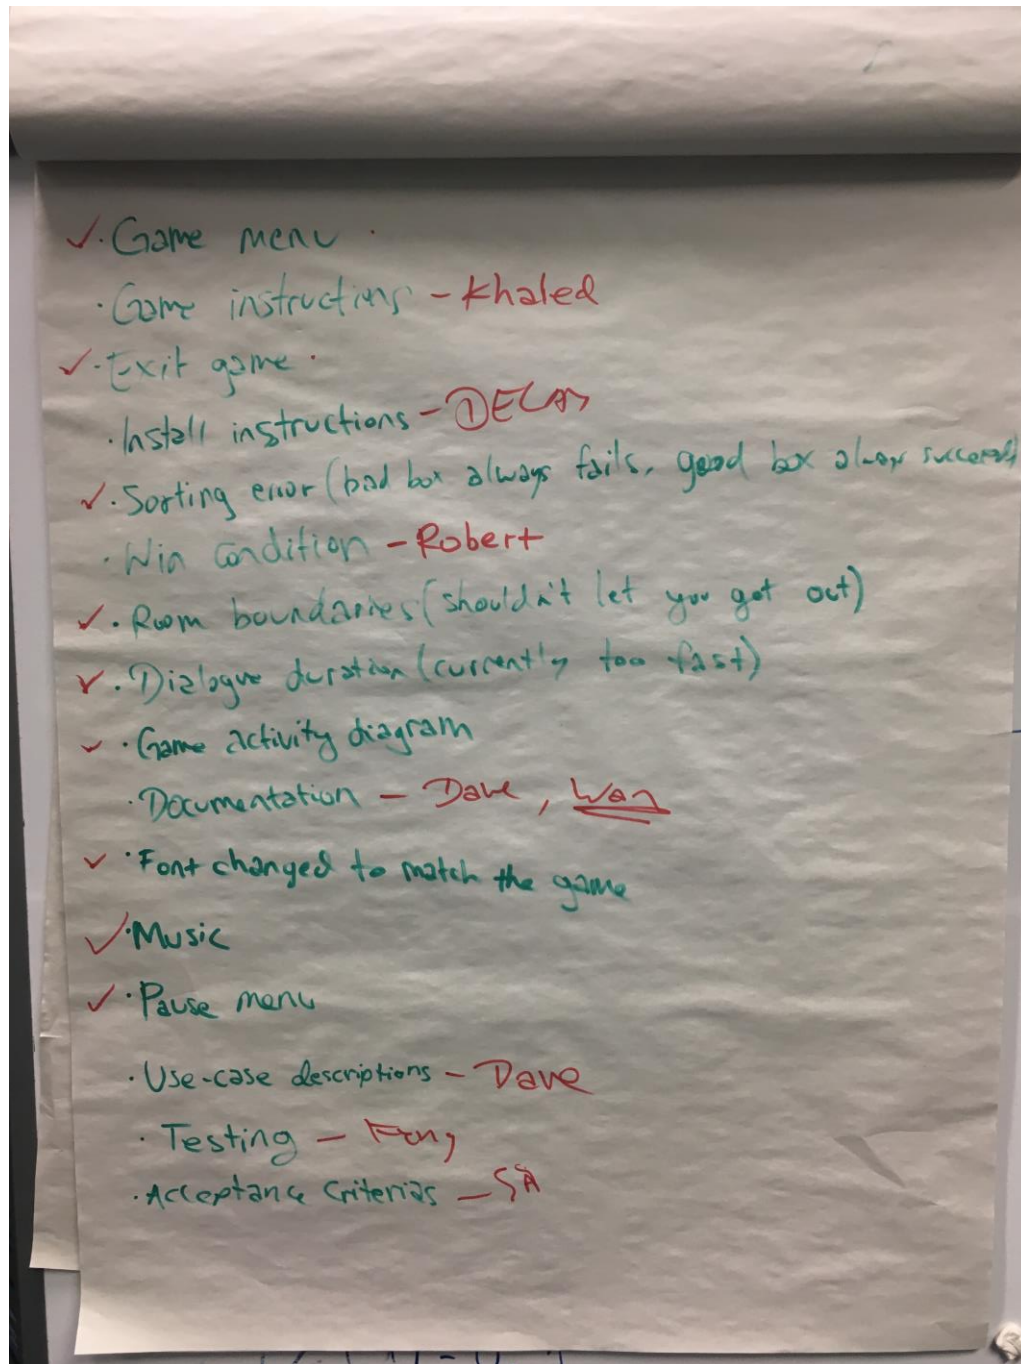 ✓ · Game menu ·
· Game instructions - Khaled
✓ · Exit game ·
· Install instructions -
✓ · Sorting error (bad box always fails, good box always succeeds)
· Win condition - Robert
✓ · Room boundaries (shouldn't let you got out)
✓ · Dialogue duration (currently too fast)
✓ · Game activity diagram
· Documentation - Dave, Wan
✓ · Font changed to match the game
✓ · Music
✓ · Pause menu
· Use-case descriptions - Dave
· Testing -
· Acceptance Criterias - SA